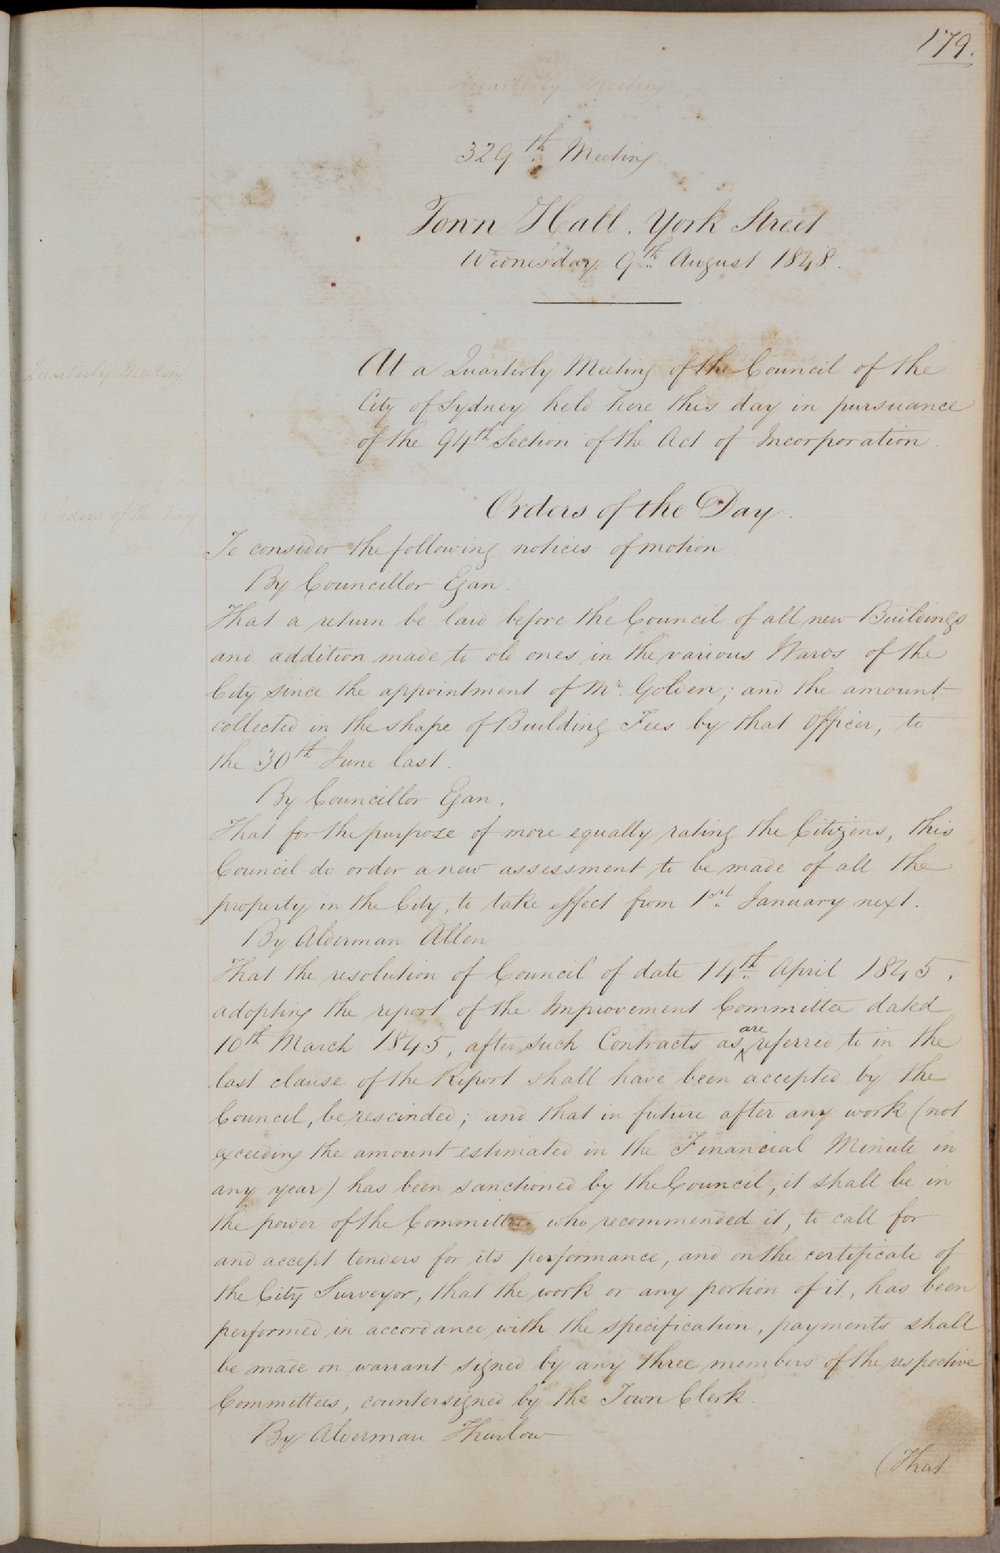 179.
Quarterly Meeting
329th Meeting
Town Hall. York Street
Wednesday 9th August 1848.
Quarterly Meeting
At a Quarterly Meeting of the Council of the
City of Sydney held here this day in pursuance
of the 94th Section of the Act of Incorporation.
Orders of the Day
Orders of the Day.
To consider the following notices of motion
By Councillor Egan.
That a return be laid before the Council of all new Buildings
and addition made to old ones in the various Wards of the
City since the appointment of Mr. Golden; and the amount
collected in the shape of Building Fees by that Officer, to
the 30th June last.
By Councillor Egan.
That for the purpose of more equally rating the Citizens, this
Council do order a new assessment to be made of all the
property in the City, to take effect from 1st January next.
By Alderman Allen
That the resolution of Council of date 14th April 1845,
adopting the report of the Improvement Committee dated
10th March 1845, after such Contracts as are referred to in the
last clause of the Report shall have been accepted by the
Council, be rescinded; and that in future after any work (not
exceeding the amount estimated in the Financial Minute in
any year) has been sanctioned by the Council, it shall be in
the power of the Committee who recommended it, to call for
and accept tenders for its performance, and on the certificate of
the City Surveyor, that the work or any portion of it, has been
performed in accordance with the specification, payments shall
be made on warrant signed by any three members of the respective
Committees, countersigned by the Town Clerk.
By Alderman Thurlow
(That